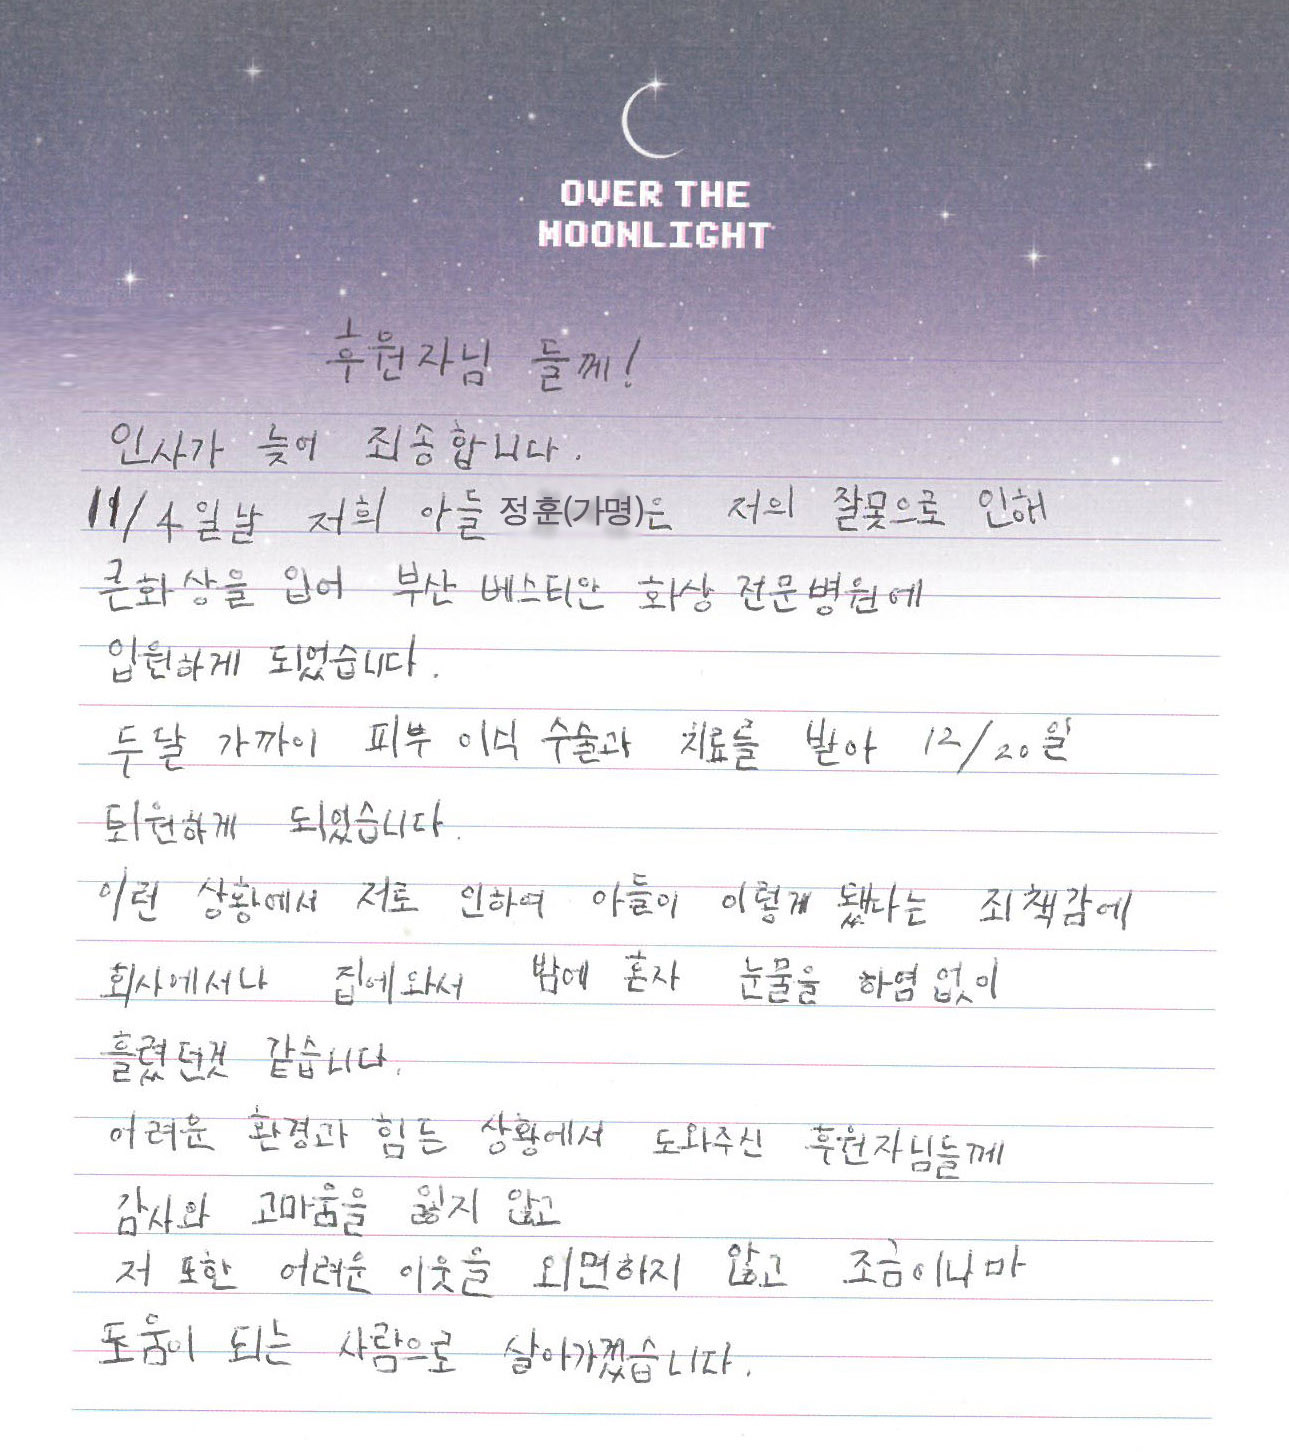 OVER THE
MOONLIGHT
후원자님 들께!
인사가 늦어 죄송합니다.
11/4일날 저희 아들 정훈(가명)은 저의 잘못으로 인해
큰화상을 입어 부산 베스티안 화상 전문병원에
입원하게 되었습니다.
두달 가까이 피부 이식 수술과 치료를 받아 12/20일
퇴원하게 되었습니다.
이런 상황에서 저로 인하여 아들이 이렇게 됐다는 죄책감에
회사에서나 집에와서 밤에 혼자 눈물을 하염없이
흘렸던것 같습니다.
어려운 환경과 힘든 상황에서 도와주신 후원자님들께
감사와 고마움을 잃지 않고
저 또한 어려운 이웃을 외면하지 않고 조금이나마
도움이 되는 사람으로 살아가겠습니다.